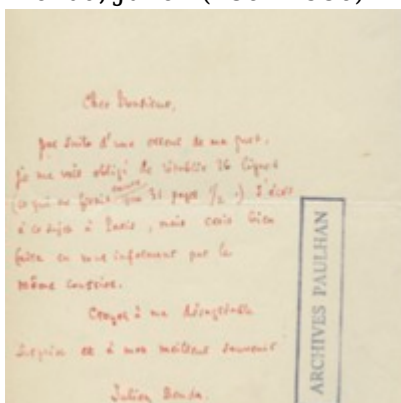 Cher Monsieur,
par suite d'une erreur de ma part,
je me vois obligé de rétablir 26 lignes
(ce qui ne ferait encore que 31 pages 1/2.) J'écris
à ce sujet à Paris, mais crois bien
faire en vous informant par le
même courrier.
Croyez à ma désagréable
surprise et à mon meilleur souvenir
Julien Benda.
ARCHIVES PAULHAN